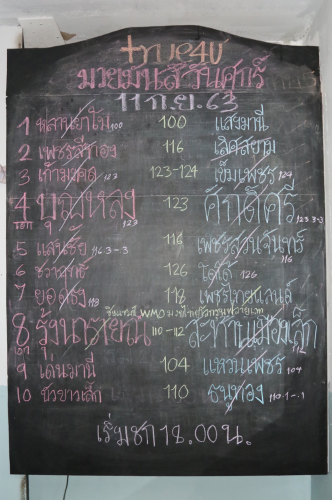 true4U
มวยมันส์วันศุกร์
11 ก.ย. 63
1 หลานยาโม 100 100 แสงมานี
2 เพชรสีทอง 116 เลิศสยาม
3 123-124 เข็มเพชร 124
4 บุญหลง 123 123 ศักดิ์ศรี 123.3-3
เอก
5 แสนชัย 116.3-3 116 เพชรสวนจันทร์ 116
6 126 โตโต้ 126
7 ยอดธง 118 118 เพชรไทยแลนด์
ชิงแชมป์ WMO
8 รุ้งนารายณ์ 110-112 สะท้านเมืองเล็ก 112
9 เด่นมานี 104 แหวนเพชร 104
10 บัวขาวเล็ก 110 ธนูทอง 110.1-1
เริ่มชก 18.00 น.